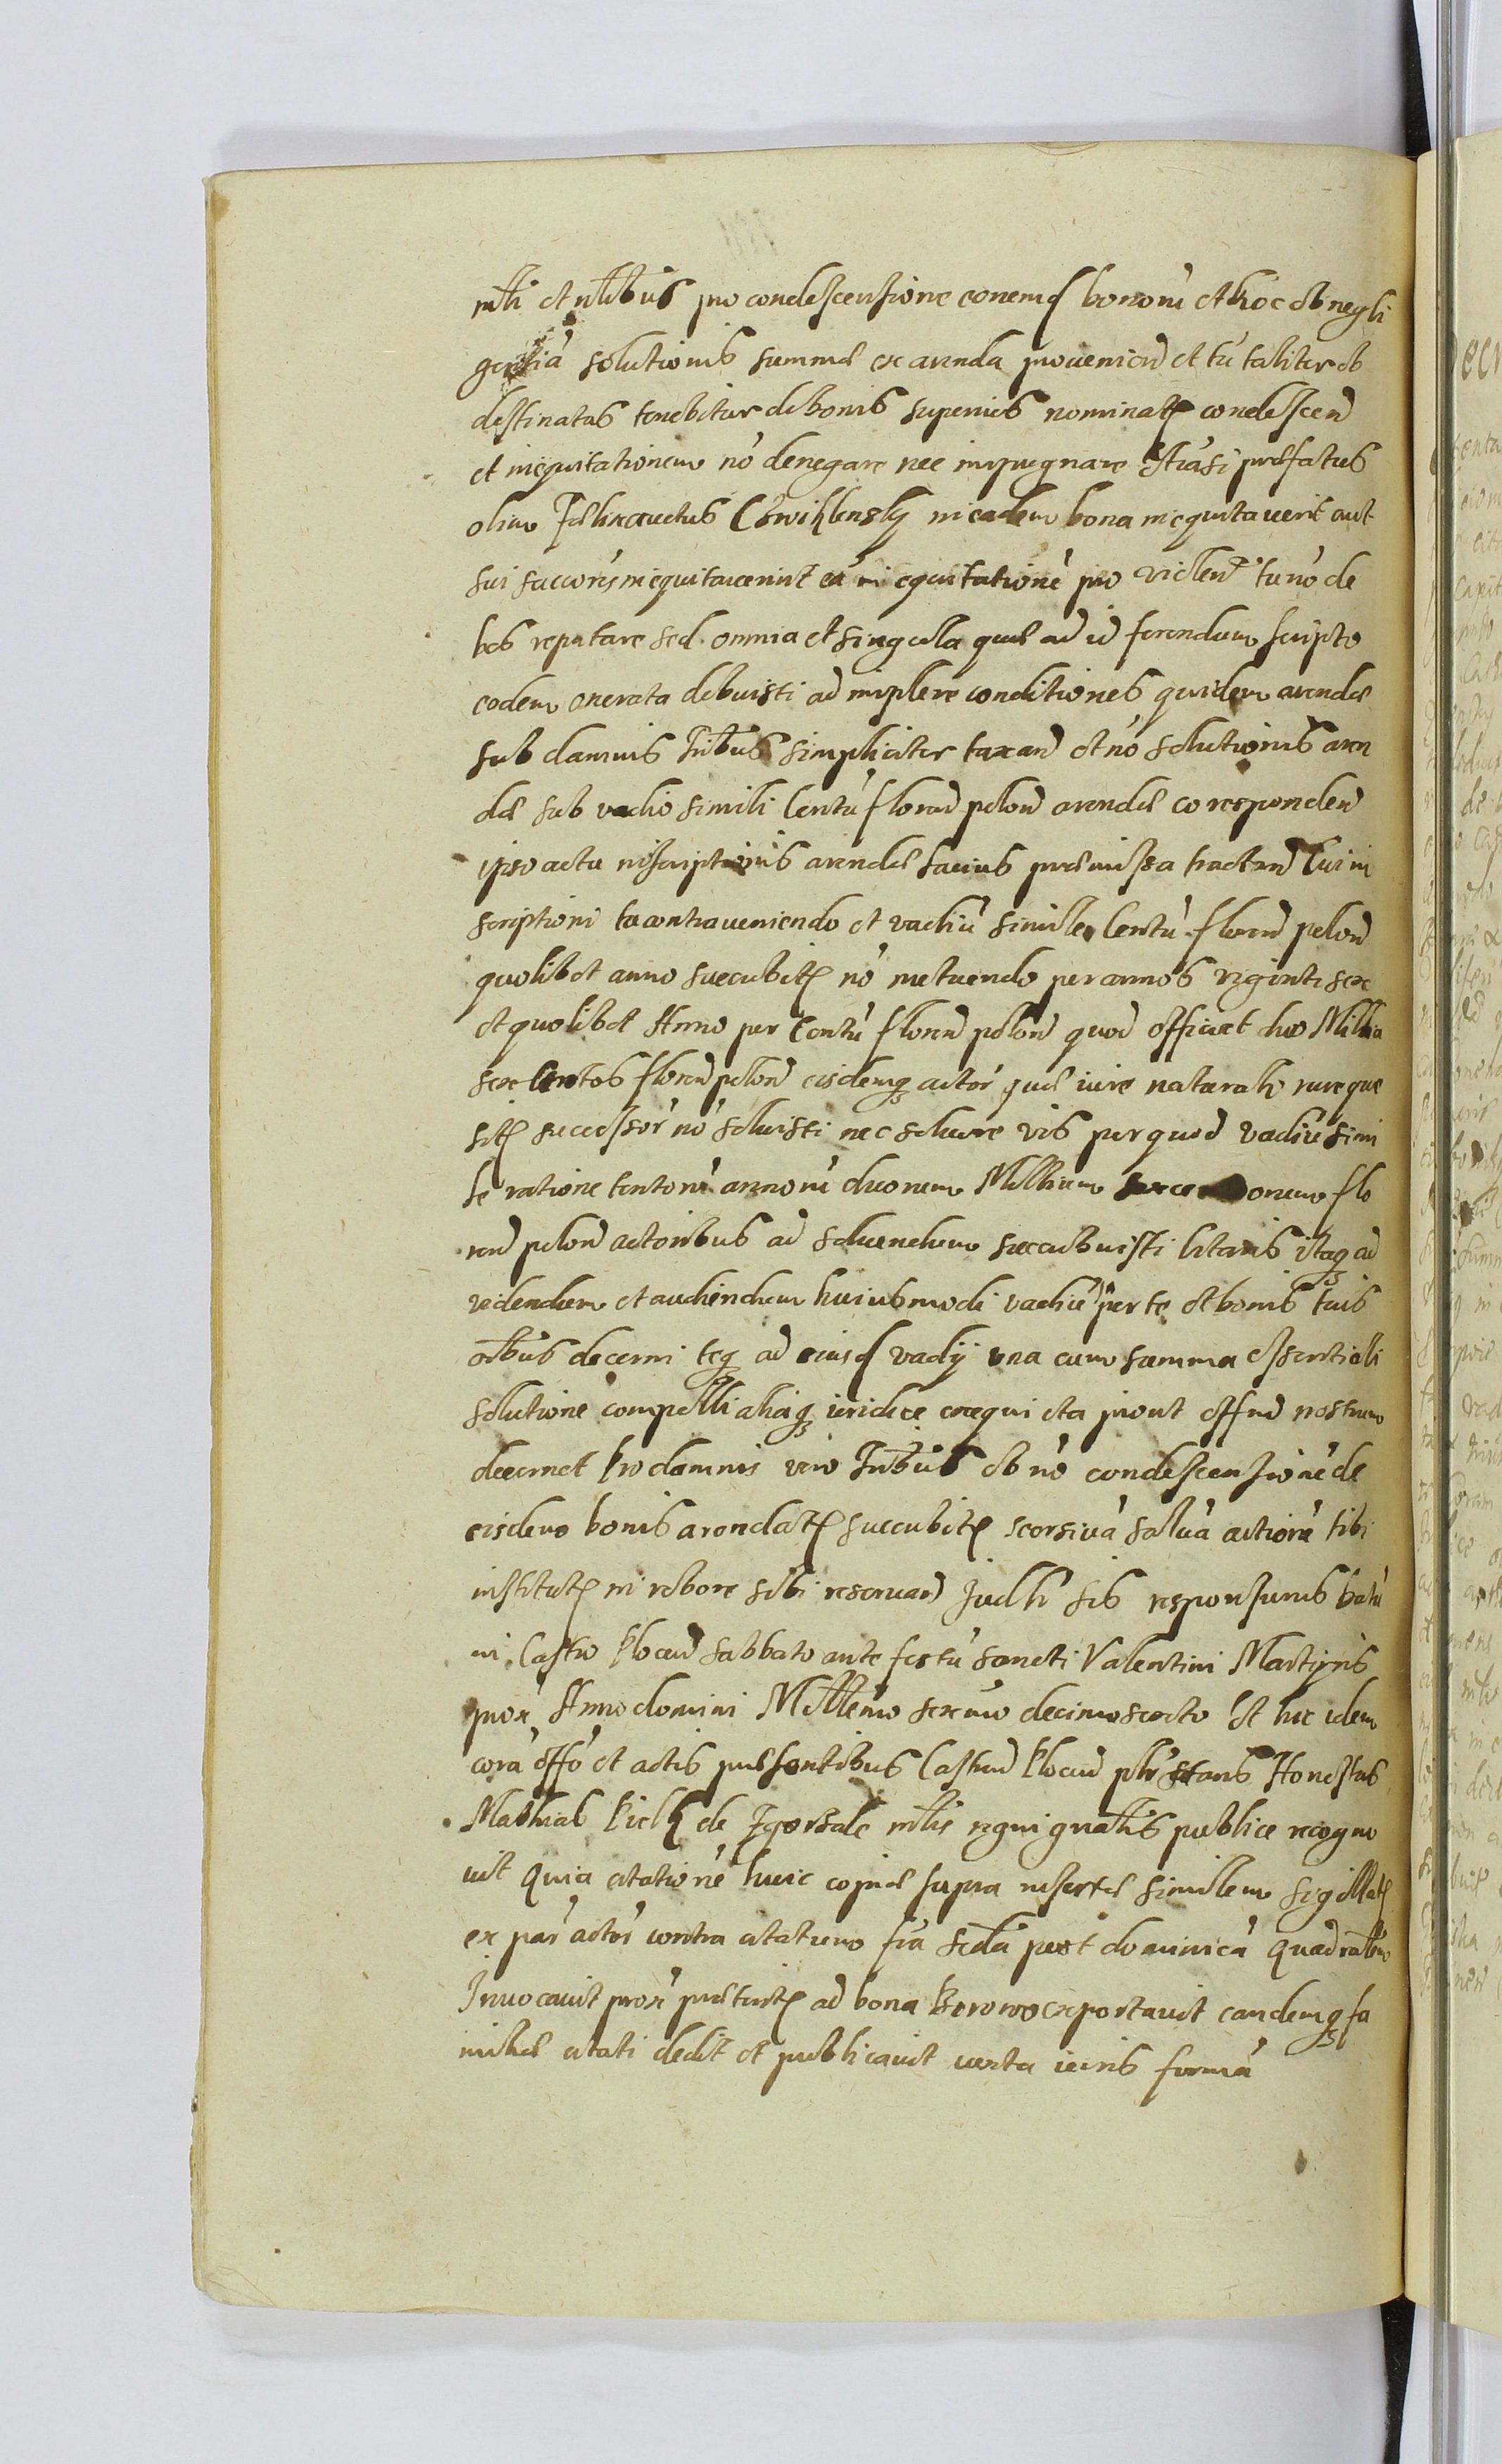 mtri et ntibus pro condescensione eorund bonoru et hoc ob negli
gentia solutionis summæ ex arenda provenien et tu taliter ob
destinatus tenebitur de bonis superius nominat condescen
et inequitationem no denegare nec impugnare Et uasi præfatus
olim inequitaverit aut
sui succores inequitaverint ea inequitatione pro violen tu no de
bes reputare sed omnia et singula quæ ad id ferendum scripto
eodem onerata debuisti ad implere conditiones quidem arendæ
sub damnis Tribus simpliciter taxan et no solutionis aren
dæ sub vadio simili Centu floren polon arendæ corresponden
ipso actu inscriptionis arendæ facius præmissa tractan Cui in
scriptioni tu contraveniendo et vadiu simile Centu floren polon
quolibet anno succubit no metuendo per annos viginti sex
et quolibet Anno per Centu floren polon quod efficiet duo Millia
sex Centos floren polon eisdemq actor quæ iure naturali iureque
sit successor no solvisti nec solvere vis per quod vadiu simi
le ratione tantoru annoru duorum Millium florem flo
ren polon actoribus ad solvendum succubuisti literis itaq ad
videndum et audiendum huiusmodi vadiu per te et bonis tuis
oibus decerni teq ad eiusd vadij una cum summa essentiali
solutione compelli aliaq iuridice exequi ita prout offm nostrum
decernet Pro damnis vero Tribus ob no condescensione de
eisdem bonis arendat succubit seorsiva salva actione tibi
institut in robore sibi reservan Judlr sis responsurus
in Castro Plocen sabbato ante festu sancti Valentini Martyris
prox Anno domini Millemo sexmo decimo sexto Et hic idem
cora offo et actis præsentibus Castren Plocen plr stans Honestus
Mathias de mtis regni gnalis publice recogno
vit Quia citatione huic copiæ supra insertæ similem sigillat
ex par actor contra citatum fia scda post dominica Quadralem
Invocavit prox præterit ad bona Borowo exportavit eandemq fa
miliæ citati dedit et publicavit iuxta iuris forma